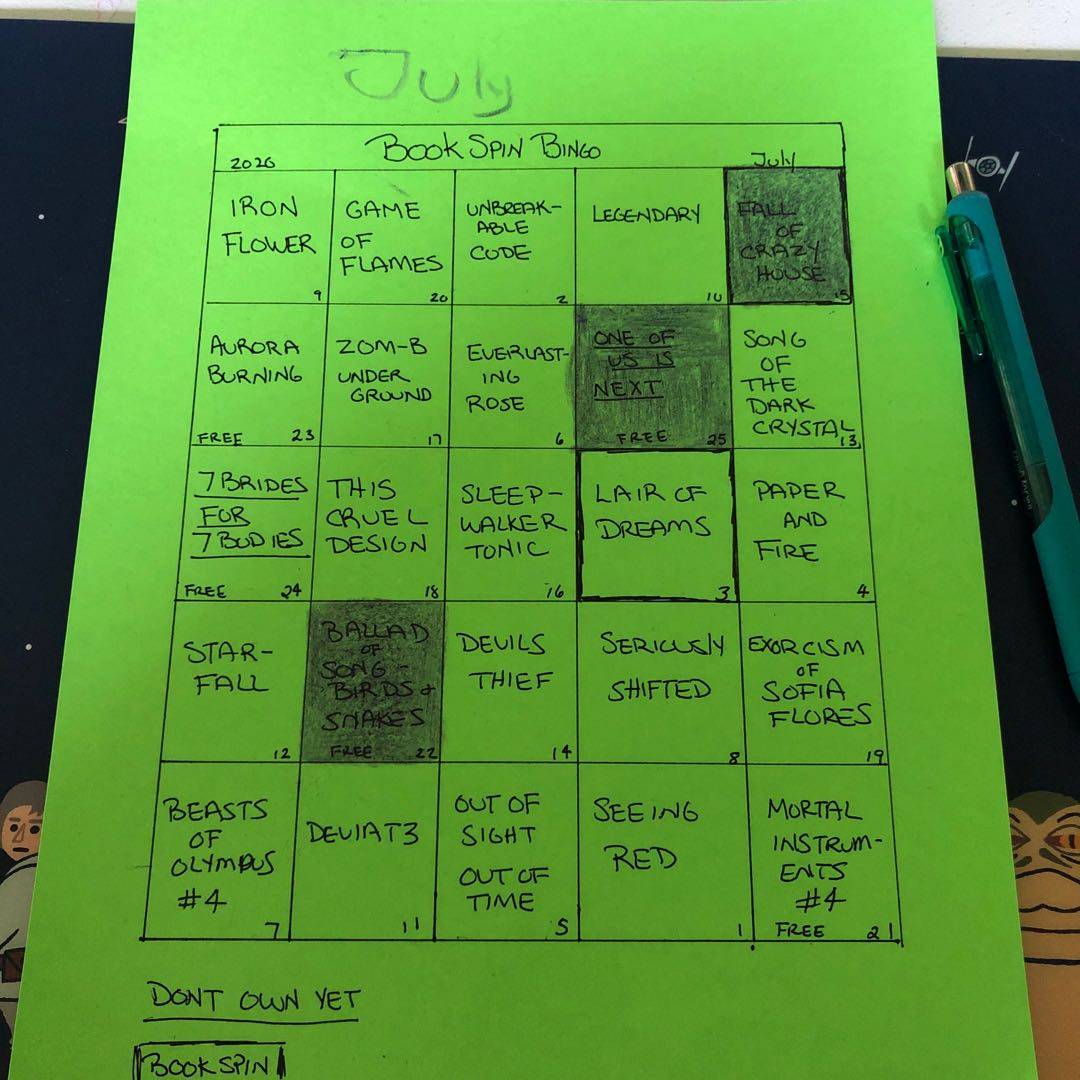 July
BOOK SPIN BINGO
2020
July
IRON
FLOWER
9
GAME
OF
FLAMES
20
UNBREAK-
ABLE
CODE
2
LEGENDARY
10
FALL
OF
CRAZY
HOUSE
15
AURORA
BURNING
FREE 23
ZOM-B
UNDER
GROUND
17
EVERLAST-
ING
ROSE
6
ONE OF
US IS
NEXT
FREE 25
SONG
OF
THE
DARK
CRYSTAL
13
7 BRIDES
FOR
7 BODIES
FREE 24
THIS
CRUEL
DESIGN
18
SLEEP-
WALKER
TONIC
16
LAIR OF
DREAMS
3
PAPER
AND
FIRE
4
STAR-
FALL
12
BALLAD
OF
SONG-
BIRDS &
SNAKES
FREE 22
DEVILS
THIEF
14
SERIOUSLY
SHIFTED
8
EXORCISM
OF
SOFIA
FLORES
19
BEASTS
OF
OLYMPUS
#4
7
DEVIAT3
11
OUT OF
SIGHT
OUT OF
TIME
5
SEEING
RED
1
MORTAL
INSTRUM-
ENTS
#4
FREE 21
DONT OWN YET
BOOKSPIN